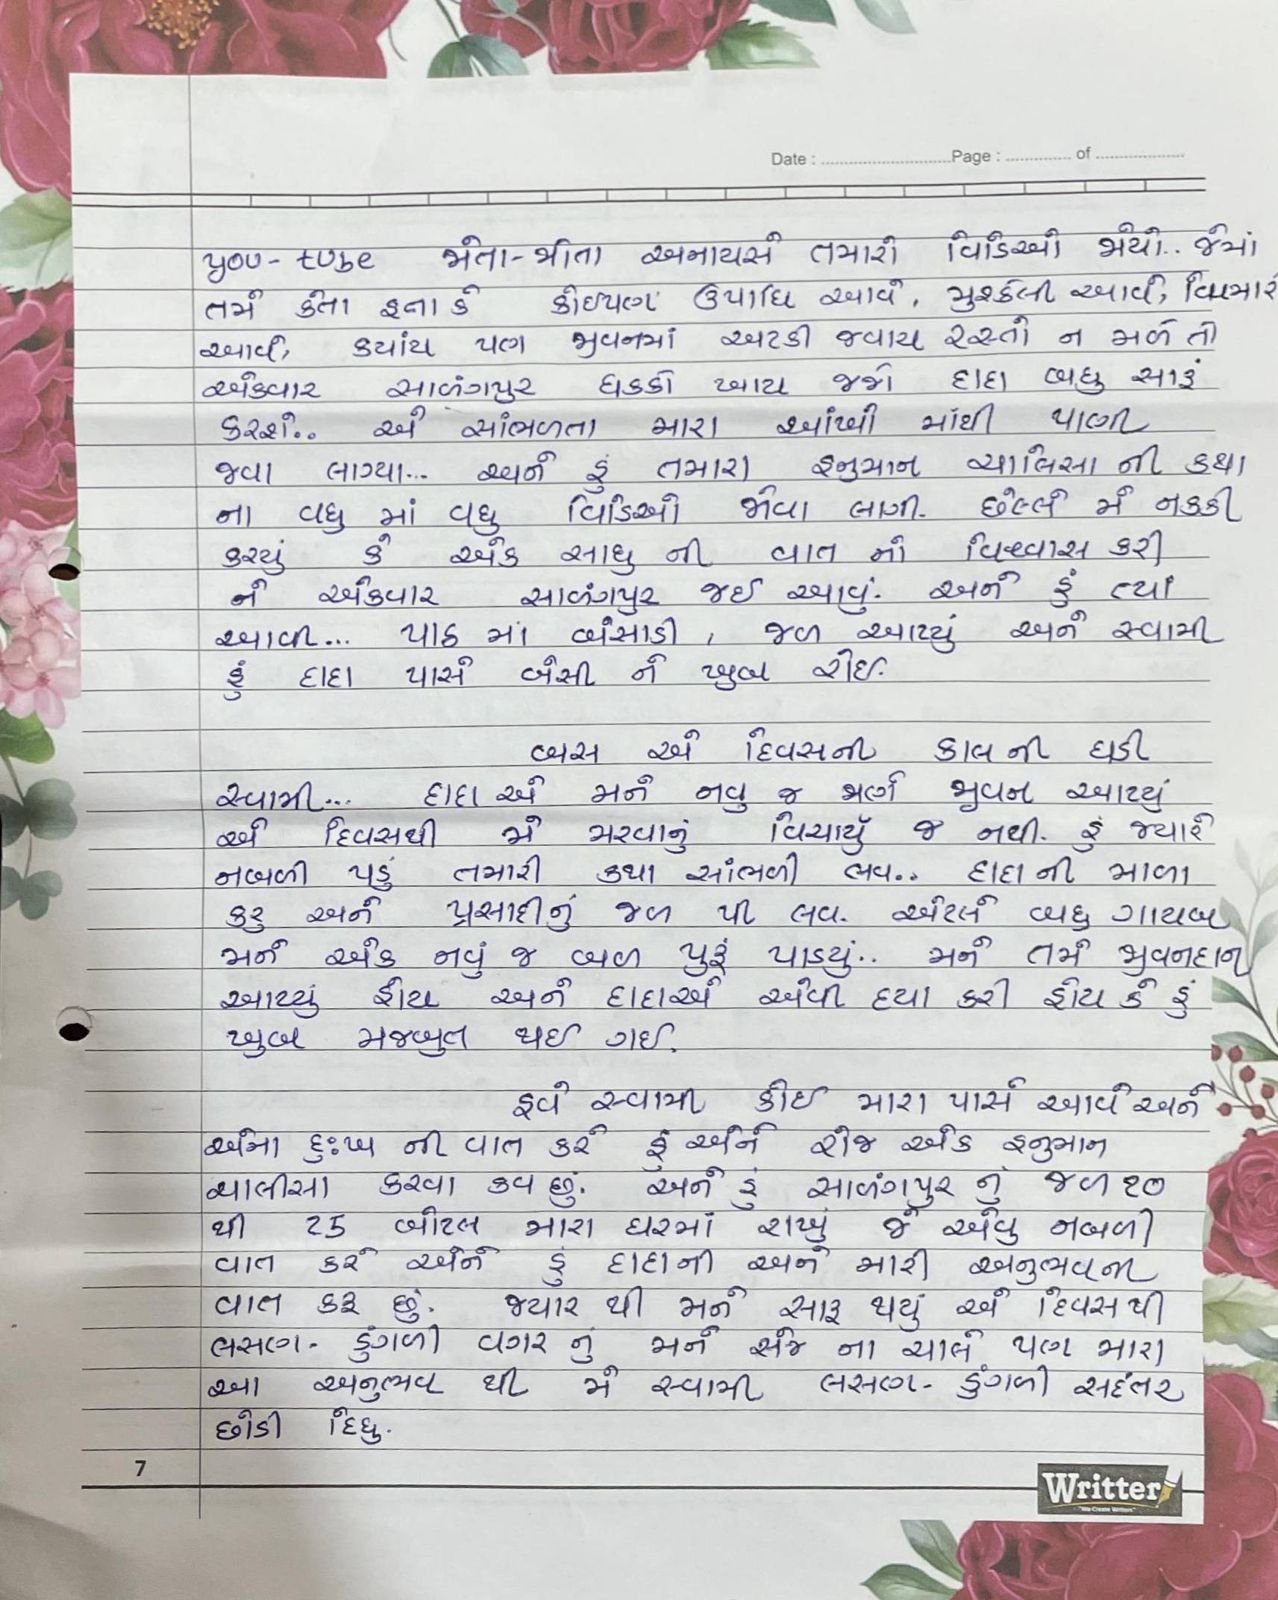 Date : ............................Page : .............. of ...................
you-tube જોતા-જોતા અનાયસે તમારો વિડિઓ જોયો.. જેમાં
તમે કેતા હતા કે કોઈપણ ઉપાધિ આવે, મુશ્કેલી આવે, બિમારી
આવે, કયાંય પણ જીવનમાં અટકી જવાય રસ્તો ન મળે તો
એકવાર સાળંગપુર ધકકો ખાય જજો દાદા બધુ સારૂં
કરશે.. એ સાંભળતા મારા આંખો માંથી પાણી
જવા લાગ્યા... અને હું તમારા હનુમાન ચાલિસા ની કથા
ના વધુ માં વધુ વિડિઓ જોવા લાગી. છેલ્લે મે નકકી
કરયું કે એક સાધુ ની વાત નો વિશ્વાસ કરી
ને એકવાર સાળંગપુર જઈ આવું. અને હું ત્યાં
આવી... પાઠ માં બેસાડી, જળ આપ્યું અને સ્વામી
હું દાદા પાસે બેસી ને ખુબ રોઈ.
બસ એ દિવસની કાલ ની ઘડી
સ્વામી... દાદા એ મને નવુ જ જાણે જીવન આપ્યું
એ દિવસથી મે મરવાનું વિચાર્યું જ નથી. હું જ્યારે
નબળી પડું તમારી કથા સાંભળી લવ.. દાદા ની માળા
કરુ અને પ્રસાદીનું જળ પી લવ. એટલે બધુ ગાયબ
મને એક નવું જ બળ પુરૂં પાડયું.. મને તમે જીવનદાન
આપ્યું હોય અને દાદાએ એવી દયા કરી હોય કે હું
ખુબ મજબુત થઈ ગઈ.
હવે સ્વામી કોઈ મારા પાસે આવે અને
એના દુઃખ ની વાત કરે હું એને રોજ એક હનુમાન
ચાલીસા કરવા કવ છું. અને હું સાળંગપુર નું જળ ૨૦
થી ૨5 બોટલ મારા ઘરમાં રાખું જે એવુ નબળી
વાત કરે એને હું દાદાની અને મારી અનુભવની
વાત કરૂ છું. જ્યાર થી મને સારૂ થયું એ દિવસ થી
લસણ-ડુંગળી વગર નું મને સેજ ના ચાલે પણ મારા
આ અનુભવ થી મે સ્વામી લસણ-ડુંગળી સદંતર
છોડી દિધુ.
7
Writter
"We Create Writers"